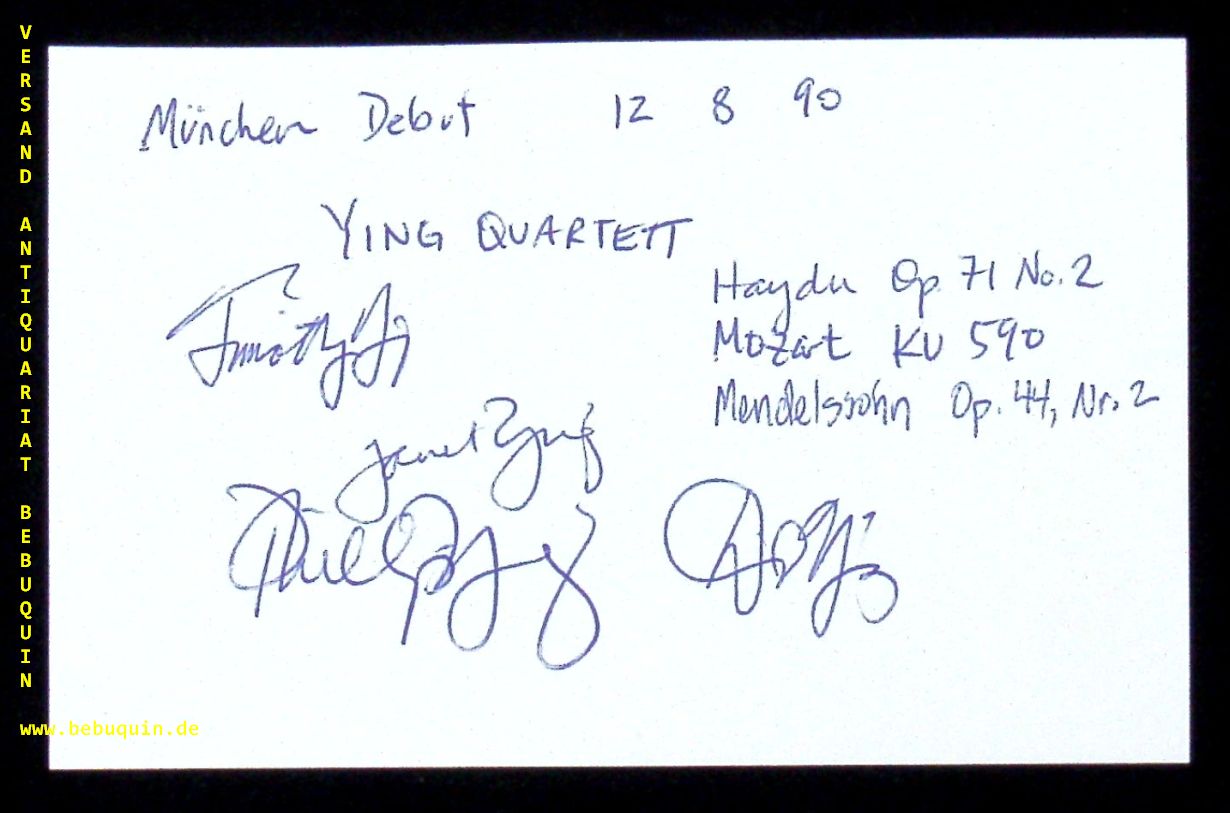 VERSAND ANTIQUARIAT BEBUQUIN
München Debut 12 8 90
YING QUARTETT
Haydn Op. 71 No. 2
Mozart KV 590
Mendelssohn Op. 44, Nr. 2
Timothy Ying
Janet Ying
Phillip Ying
www.bebuquin.de